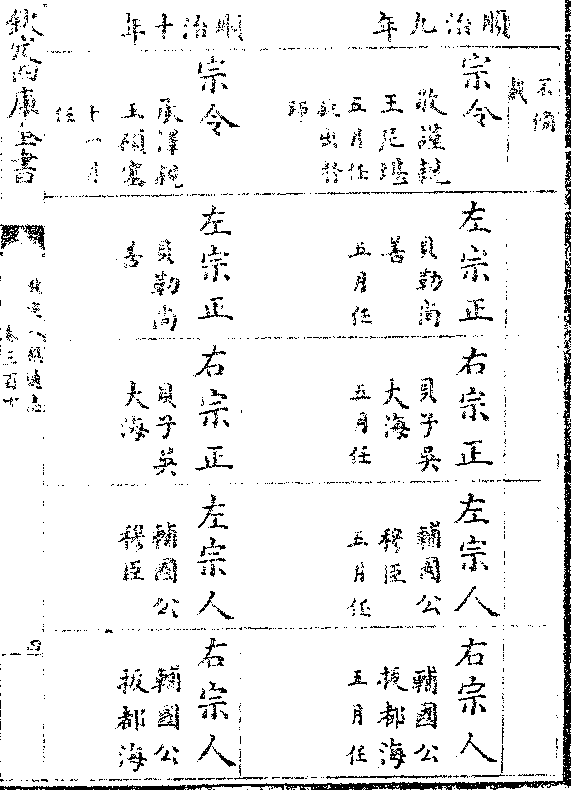 不備
載
順治九年
宗令
敬謹親
王尼堪
五月任
敕出特
師
左宗正
貝勒尚
善
五月任
右宗正
貝子吳
大海
五月任
左宗人
輔國公
穆臣
五月任
右宗人
輔國公
扳都海
五月任
順治十年
宗令
承澤親
王碩塞
十一月
任
左宗正
貝勒尚
善
右宗正
貝子吳
大海
左宗人
輔國公
穆臣
右宗人
輔國公
扳都海
欽定四庫全書
欽定八旗通志
卷三百十